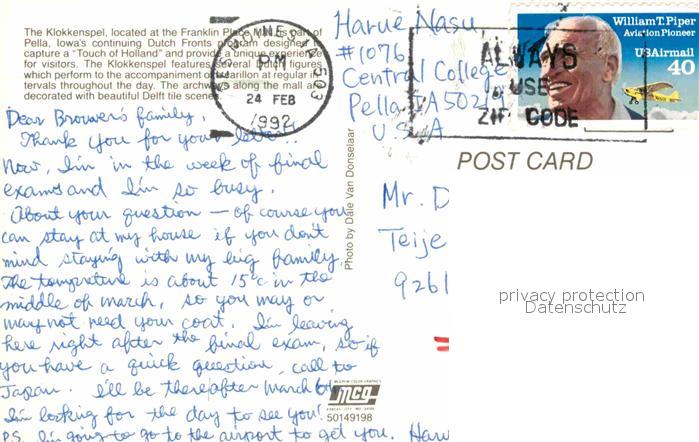 The Klokkenspel, located at the Franklin Place Mall is part of
Pella, Iowa's continuing Dutch Fronts program designed to
capture a "Touch of Holland" and provide a unique experience
for visitors. The Klokkenspel features several Dutch figures
which perform to the accompaniment of carillon at regular in-
tervals throughout the day. The archways along the mall are
decorated with beautiful Delft tile scenes.
DES MOINES, IA 503
PM
24 FEB
1992
Harue Nasu
#1076
Central College
Pella IA 50219
U.S.A
ALWAYS
USE
ZIP CODE
William T. Piper
Aviation Pioneer
USAirmail
40
POST CARD
Dear Brouwer's family,
Thank you for your letter!!
Now, I'm in the week of final
exams and I'm so busy.
About your question — of course you
can stay at my house if you don't
mind staying with my big family.
The temprature is about 15°c in the
middle of march, so you may or
may not need your coat. I'm leaving
here right after the final exam, so if
you have a quick question, call to
Japan. I'll be there after March 6th
I'm looking for the day to see you!
P.S. I'm going to go to the airport to get you. Haru
Photo by Dale Van Donselaar
Mr. D
Teije
9261
privacy protection
Datenschutz
mcg
50149198